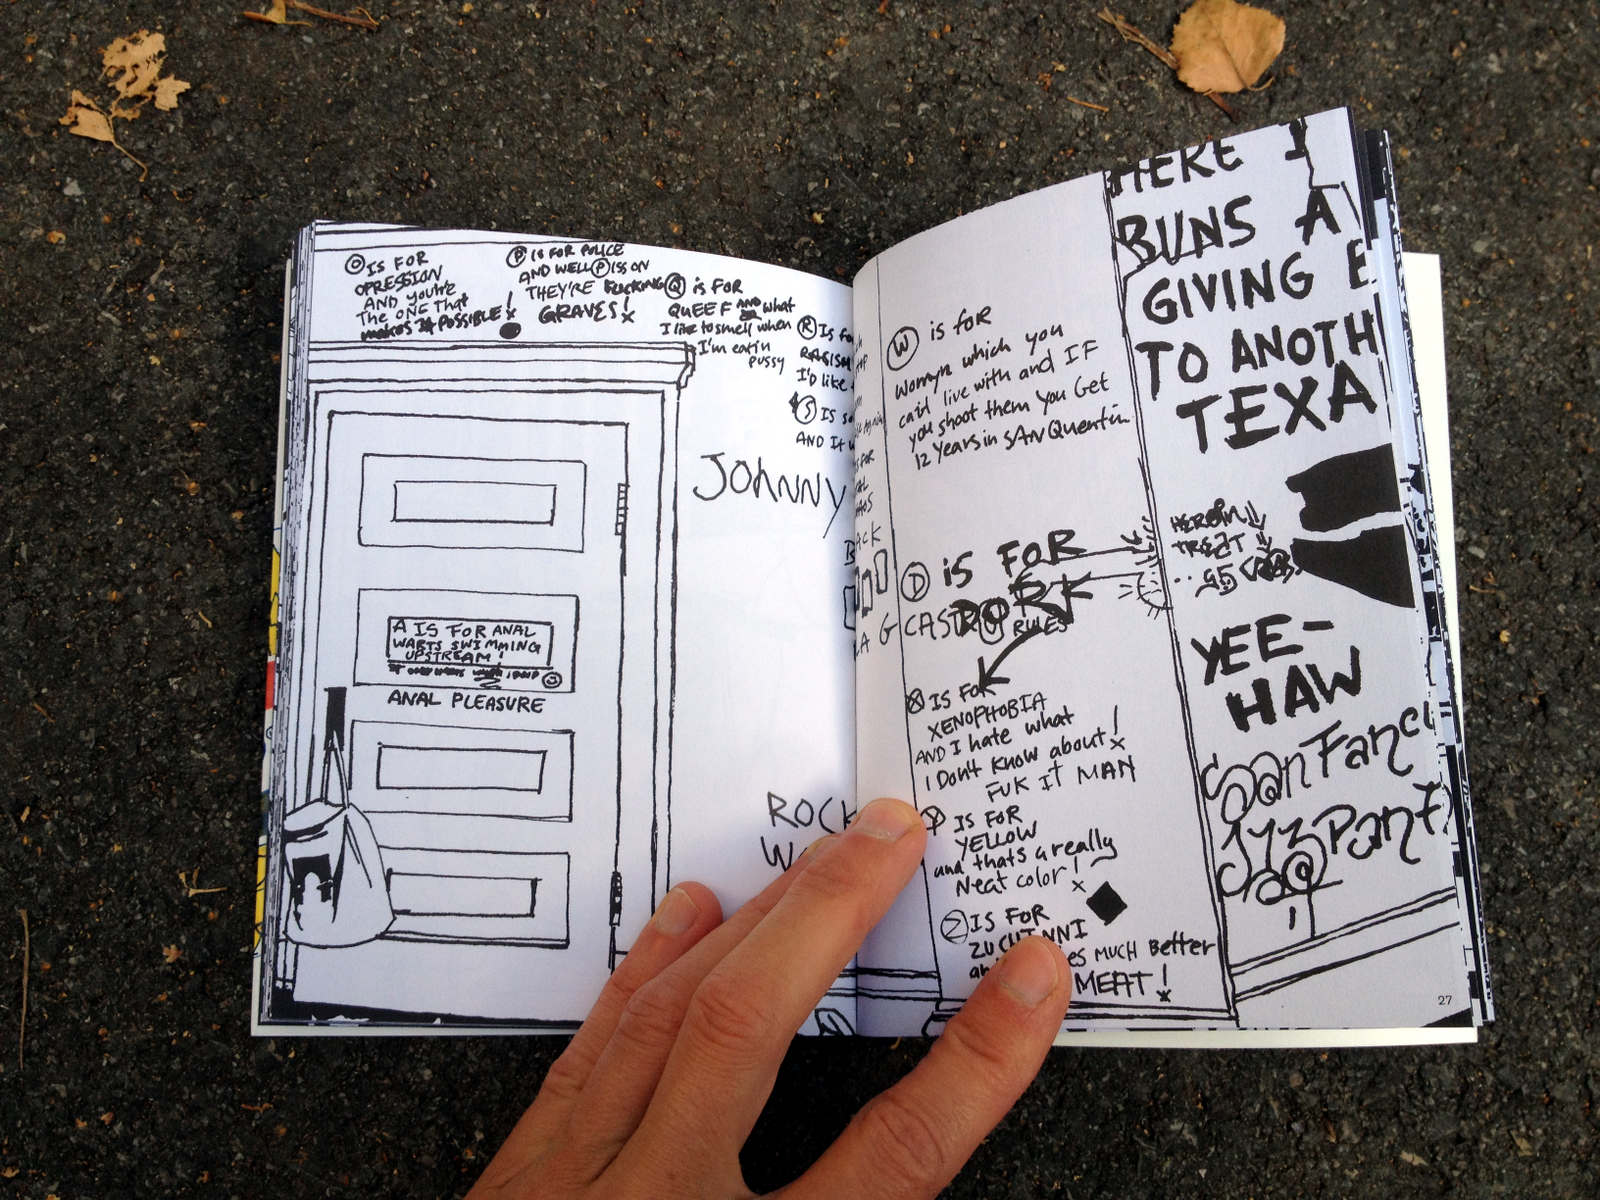 O IS FOR
OPRESSION
AND you're
the ONE That
makes it POSSIBLE!
P IS FOR POLICE
AND WELL PISS ON
THEY'RE FUCKING
GRAVES!
Q is FOR
QUEEF AND what
I like to smell when
I'm eatin
pussy
R IS
RACISM
I'D like
S IS
AND It
JOHNNY
A IS FOR ANAL
WARTS SWIMMING
UPSTREAM!
ANAL PLEASURE
ROCK
W is foR
Womyn which you
can't live with and IF
you shoot them you Get
12 years in SAN Quentin
D iS FOR
DORK
CASTRO
RULES
X IS FOR
XENOPHOBIA
AND I hate what
I Don't know about!
FUK IT MAN
Y IS FOR
YELLOW
and thats a really
Neat color!
Z IS FOR
ZUCHINNI
MUCH Better
MEAT!
HERE I
BUNS A
GIVING
TO ANOTH
TEXA
HEROIN
TREAT
YEE-
HAW
San Fanci
27